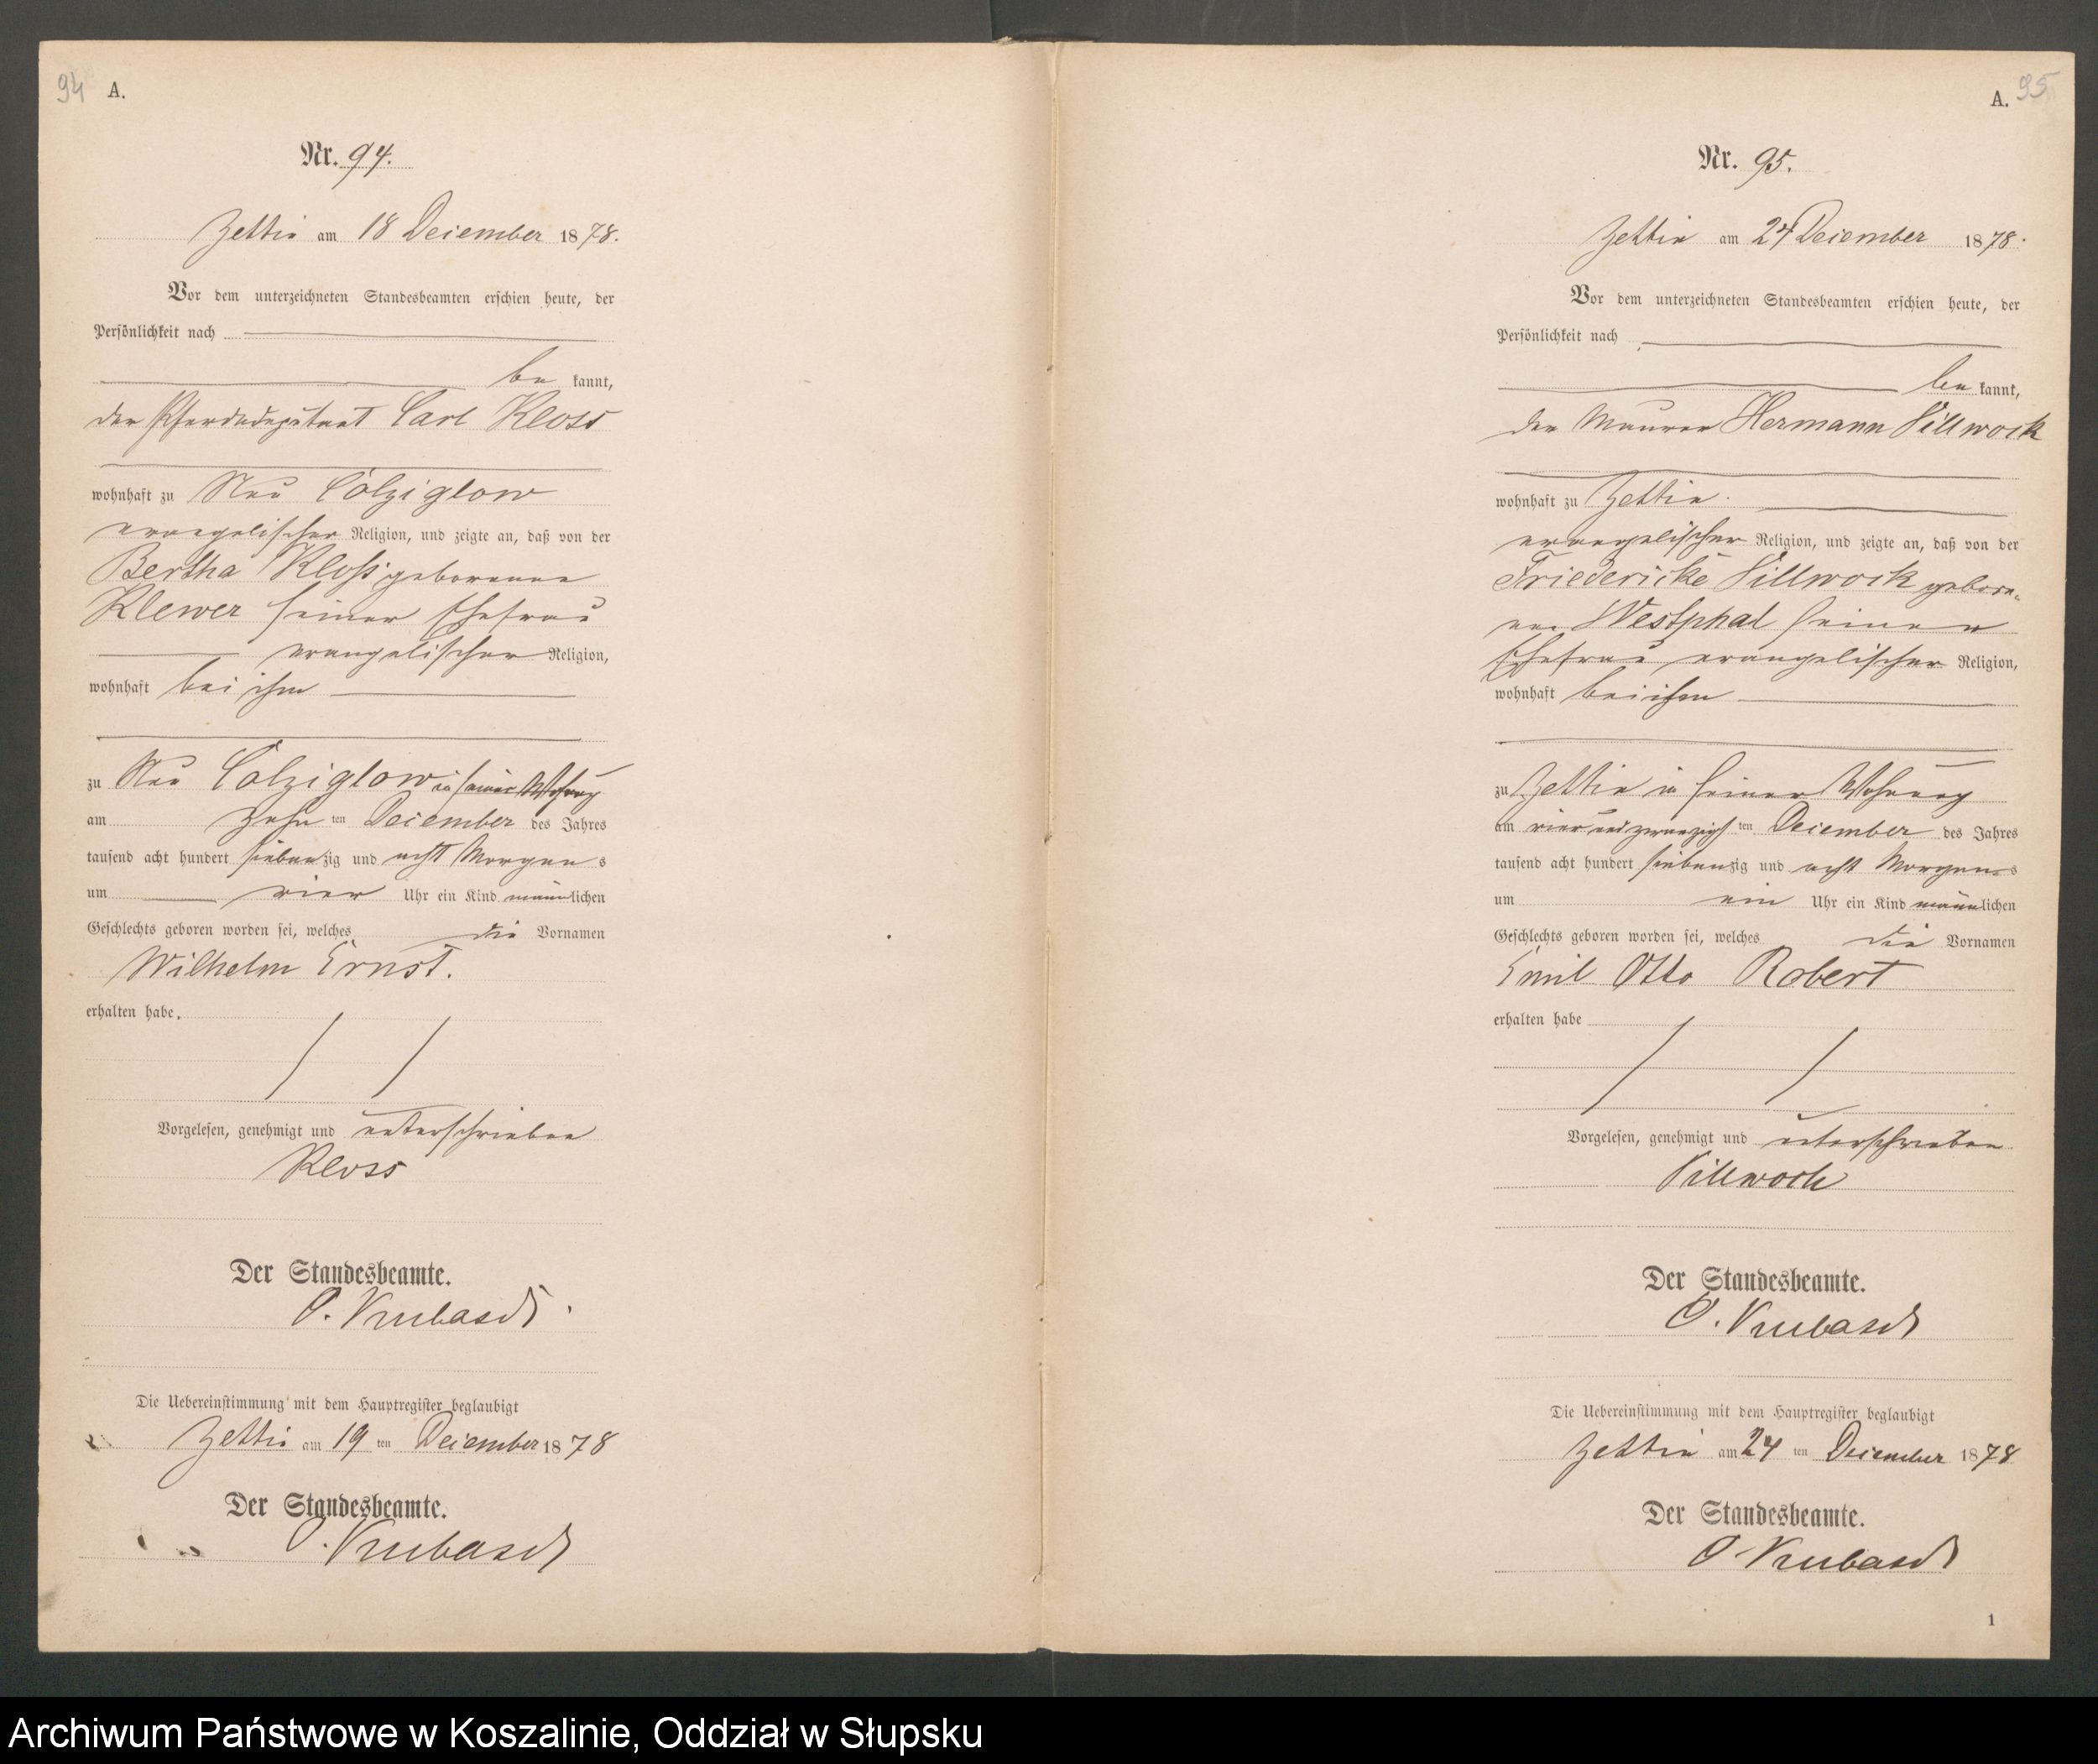 94 A.
Nr. 94.
Zettin am 18 December 1878.
Vor dem unterzeichneten Standesbeamten erschien heute, der
Persönlichkeit nach
be kannt,
der Pferdedeputant Carl Kloss
wohnhaft zu Neu Colziglow
evangelischer Religion, und zeigte an, daß von der
Bertha Kloß geborenen
Klewer seiner Ehefrau
evangelischer Religion,
wohnhaft bei ihm
zu Neu Colziglow in seiner Wohnung
am zehn ten December des Jahres
tausend acht hundert siebenzig und acht Morgens
um vier Uhr ein Kind männlichen
Geschlechts geboren worden sei, welches die Vornamen
Wilhelm Ernst.
erhalten habe.
Vorgelesen, genehmigt und unterschrieben
Kloss
Der Standesbeamte.
O.
Die Uebereinstimmung mit dem Hauptregister beglaubigt
Zettin am 19 ten December 1878
Der Standesbeamte.
O.
A. 95
Nr. 95.
Zettin am 24 December 1878.
Vor dem unterzeichneten Standesbeamten erschien heute, der
Persönlichkeit nach
be kannt,
der Maurer Hermann Villwock
wohnhaft zu Zettin.
evangelischer Religion, und zeigte an, daß von der
Friedericke Villwock gebore-
nen Westphal seiner
Ehefrau evangelischer Religion,
wohnhaft bei ihm
zu Zettin in seiner Wohnung
am vier und zwanzigsten December des Jahres
tausend acht hundert siebenzig und acht Morgens
um ein Uhr ein Kind männlichen
Geschlechts geboren worden sei, welches die Vornamen
Emil Otto Robert
erhalten habe
Vorgelesen, genehmigt und unterschrieben
Villwock
Der Standesbeamte.
O.
Die Uebereinstimmung mit dem Hauptregister beglaubigt
Zettin am 24 ten December 1878
Der Standesbeamte.
O.
1
Archiwum Państwowe w Koszalinie, Oddział w Słupsku